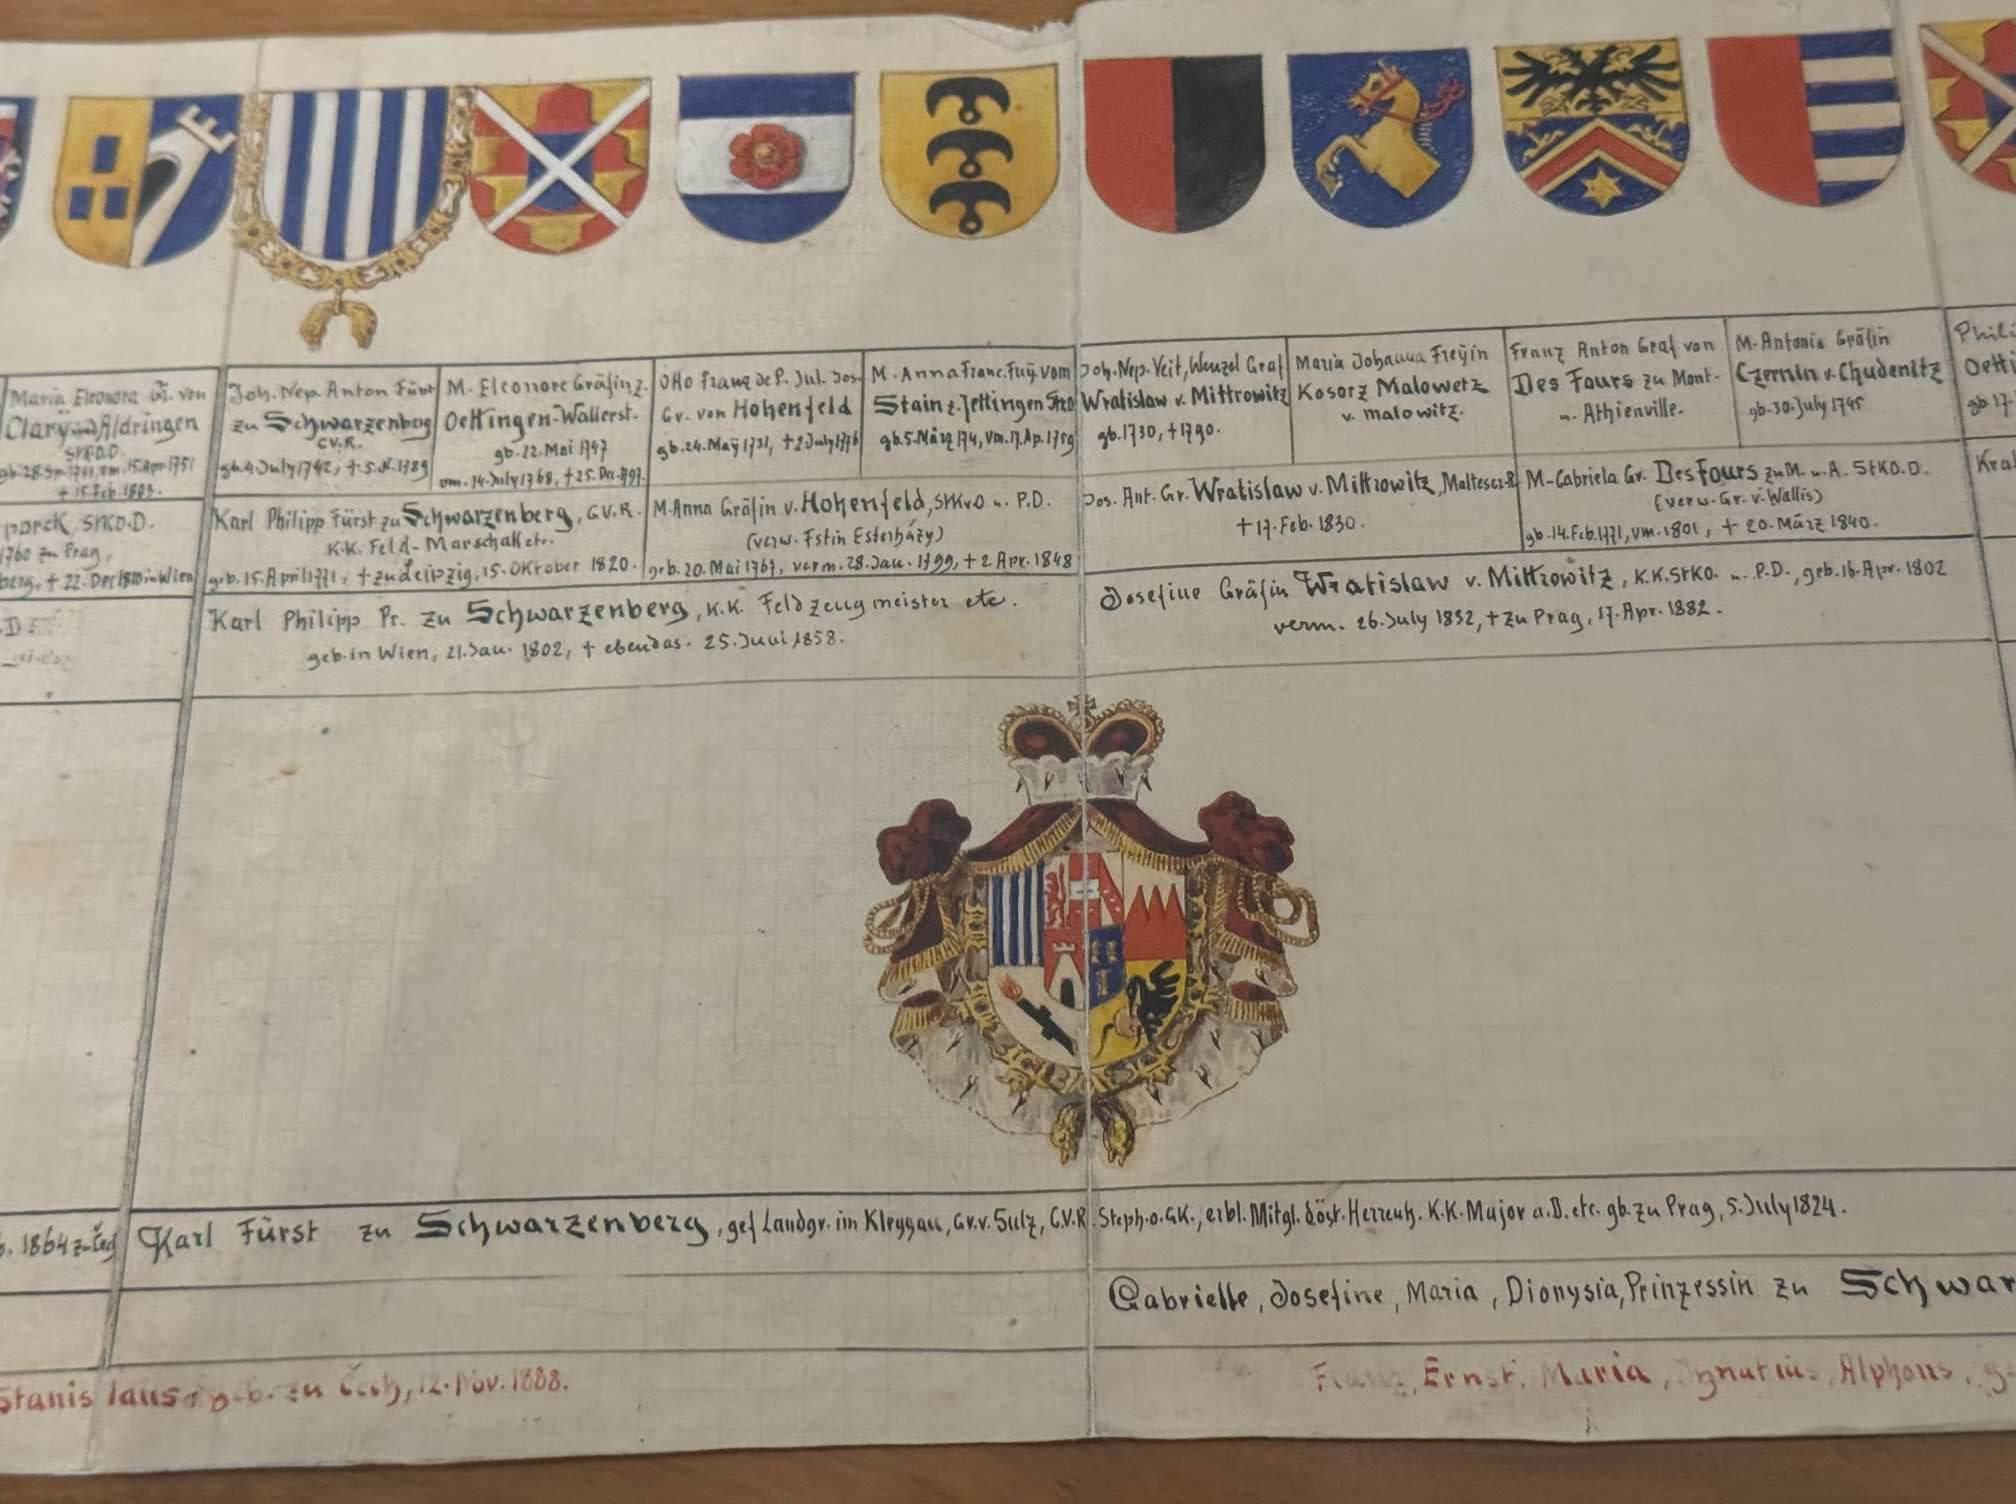 Maria Eleonora Gr. von
Clary und Aldringen
StKO.D.
vm. 15. Apr. 1751
+ 15. Feb.
Joh. Nep. Anton Fürst
zu Schwarzenberg
G.V.R.
gb. 4. July 1742, + 5. N. 1789
M. Eleonore Gräfin z.
Oettingen-Wallerst.
gb. 22. Mai 1747
vm. 14. July 1768, + 25. Dec. 797.
Otto Franz de P. Jul. Jos.
Gr. von Hohenfeld
gb. 24. Maÿ 1731, + 2 July 1776
M. Anna Franc. Fuÿ. vom
Stain z. Jettingen
gb. 5. März 174, vm. 17. Ap. 1759
Joh. Nep. Veit, Wenzel Graf
Wratislaw v. Mittrowitz
gb. 1730, + 1790.
Maria Johanna Freÿin
Kosorz Malowetz
v. malowitz.
Franz Anton Graf von
Des Fours zu Mont-
u. Athienville.
M. Antonia Gräfin
Czernin v. Chudenitz
gb. 30. July 1745
Phili
Oetti
gb 17
porck StKO.D.
1760 zu Prag,
berg, + 22. Dec 1810 in Wien
Karl Philipp Fürst zu Schwarzenberg, G.V.R.
K.K. Feld-Marschall etc.
geb. 15. April 1771, + zu Leipzig, 15. Oktober 1820.
M. Anna Gräfin v. Hohenfeld, StKrO u. P.D.
(verw. Fstin Esterházy)
geb. 20. Mai 1767, verm. 28. Jan. 1799, + 2. Apr. 1848
Jos. Ant. Gr. Wratislaw v. Mittrowitz, Malteser-R
+ 17. Feb. 1830.
M. Gabriela Gr. Des Fours zu M. u. A. StKO.D.
(verw. Gr. v. Wallis)
gb. 14. Feb. 1771, vm. 1801, + 20. März 1840.
Kra
Karl Philipp Pr. zu Schwarzenberg, K.K. Feldzeugmeister etc.
geb. in Wien, 21. Jan. 1802, + ebendas. 25. Juni 1858.
Josefine Gräfin Wratislaw v. Mittrowitz, K.K. StKO. u. P.D., geb. 16. Apr. 1802
verm. 26. July 1832, + zu Prag, 17. Apr. 1882.
1864 z.
Karl Fürst zu Schwarzenberg, gef Landgr. im Kleggau, Gr. v. Sulz, G.V.R. Steph.o.GK., erbl. Mitgl. d. öst. Herrenh. K.K. Major a.D. etc. gb. zu Prag, 5. July 1824.
Gabrielle, Josefine, Maria, Dionysia, Prinzessin zu Schwar
Stanislaus geb. zu Čech, 12. Nov. 1888.
Franz, Ernst, Maria, Ignatius, Alphons, g